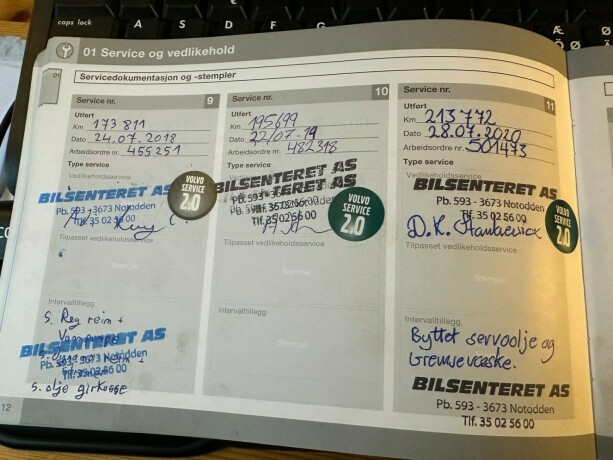 caps lock
A
S
D
F
G
Æ
Ø
01 Service og vedlikehold
01
Servicedokumentasjon og -stempler
Service nr. 9
Utført
Km 173 811
Dato 24.07.2018
Arbeidsordre nr. 455251
Type service
Vedlikeholdsservice
BILSENTERET AS
Pb. 593 - 3673 Notodden
Tlf. 35 02 56 00
VOLVO
SERVICE
2.0
Tilpasset vedlikeholdsservice
Stempel
Intervalltillegg
S. Reg reim +
BILSENTERET AS
Pb. 593 - 3673 Notodden
Tlf. 35 02 56 00
S. olje girkasse
12
Service nr. 10
Utført
Km 195699
Dato 22/07-19
Arbeidsordre nr. 482318
Type service
BILSENTERET AS
Pb. 593 - 3673 Notodden
Tlf. 35 02 56 00
VOLVO
SERVICE
2.0
Tilpasset vedlikeholdsservice
Stempel
Intervalltillegg
Stempel
Service nr. 11
Utført
Km 213 772
Dato 28.07.2020
Arbeidsordre nr. 501473
Type service
Vedlikeholdsservice
BILSENTERET AS
Pb. 593 - 3673 Notodden
Tlf. 35 02 56 00
VOLVO
SERVICE
2.0
D.K.
Tilpasset vedlikeholdsservice
Stempel
Intervalltillegg
Byttet servoolje og
bremsevæske.
BILSENTERET AS
Pb. 593 - 3673 Notodden
Tlf. 35 02 56 00